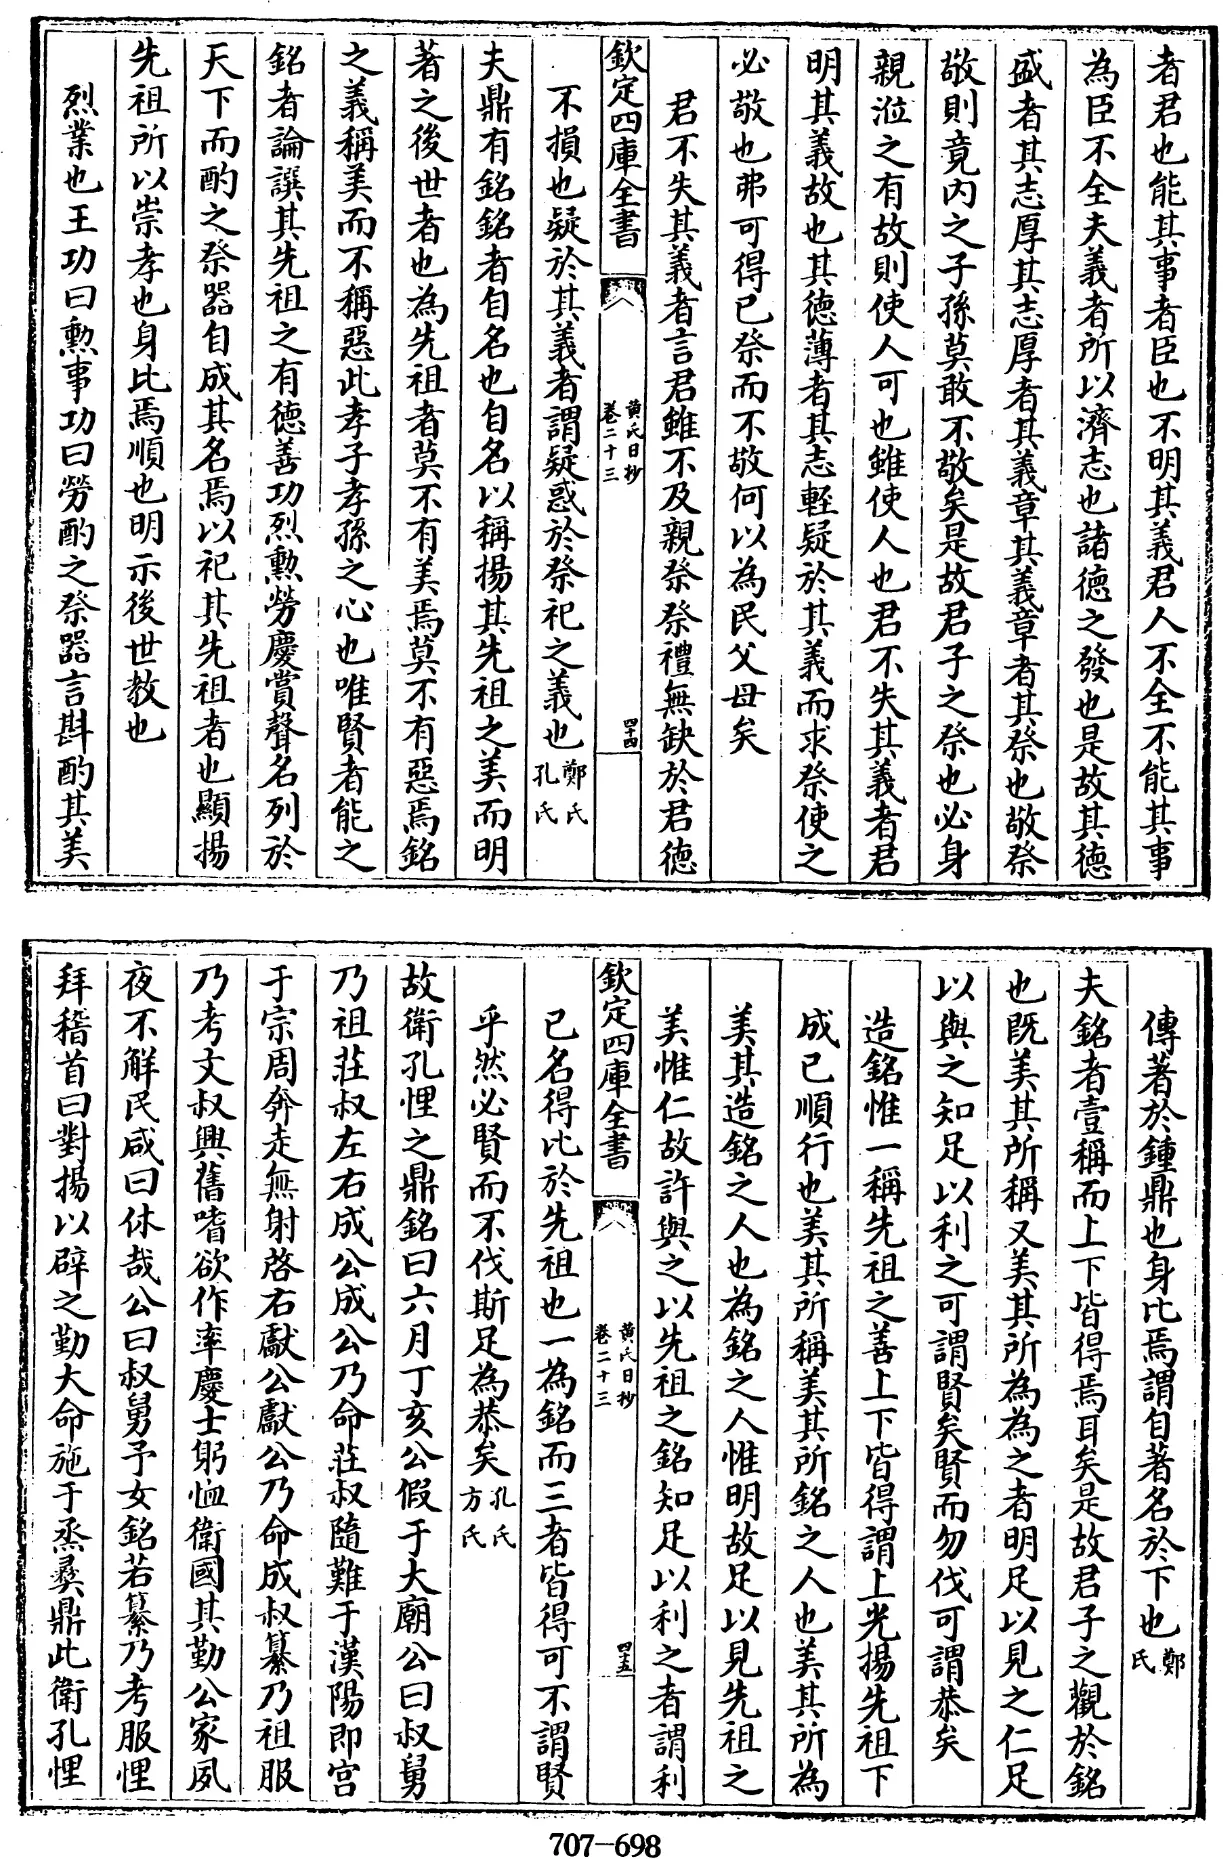 者君也能其事者臣也不明其義君人不全不能其事
為臣不全夫義者所以濟志也諸德之發也是故其德
盛者其志厚其志厚者其義章其義章者其祭也敬祭
敬則竟内之子孫莫敢不敬矣是故君子之祭也必身
親涖之有故則使人可也雖使人也君不失其義者君
明其義故也其德薄者其志輕疑於其義而求祭使之
必敬也弗可得已祭而不敬何以為民父母矣
君不失其義者言君雖不及親祭祭禮無缺於君德
欽定四庫全書
黄氏日抄
卷二十三
四十四
不損也疑於其義者謂疑惑於祭祀之義也鄭氏孔氏
夫鼎有銘銘者自名也自名以稱揚其先祖之美而明
著之後世者也為先祖者莫不有美焉莫不有惡焉銘
之義稱美而不稱惡此孝子孝孫之心也唯賢者能之
銘者論譔其先祖之有德善功烈勲勞慶賞聲名列於
天下而酌之祭器自成其名焉以祀其先祖者也顯揚
先祖所以崇孝也身比焉順也明示後世教也
烈業也王功曰勲事功曰勞酌之祭器言斟酌其美
傳著於鍾鼎也身比焉謂自著名於下也鄭氏
夫銘者壹稱而上下皆得焉耳矣是故君子之觀於銘
也既美其所稱又美其所為為之者明足以見之仁足
以與之知足以利之可謂賢矣賢而勿伐可謂恭矣
造銘惟一稱先祖之善上下皆得謂上光揚先祖下
成已順行也美其所稱美其所銘之人也美其所為
美其造銘之人也為銘之人惟明故足以見先祖之
美惟仁故許與之以先祖之銘知足以利之者謂利
欽定四庫全書
黄氏日抄
卷二十三
四十五
已名得比於先祖也一為銘而三者皆得可不謂賢
乎然必賢而不伐斯足為恭矣孔氏方氏
故衛孔悝之鼎銘曰六月丁亥公假于大廟公曰叔舅
乃祖莊叔左右成公成公乃命莊叔隨難于漢陽即宫
于宗周奔走無射啓右獻公獻公乃命成叔纂乃祖服
乃考文叔興舊嗜欲作率慶士躬恤衛國其勤公家夙
夜不解民咸曰休哉公曰叔舅予女銘若纂乃考服悝
拜稽首曰對揚以辟之勤大命施于烝彝鼎此衛孔悝
707-698